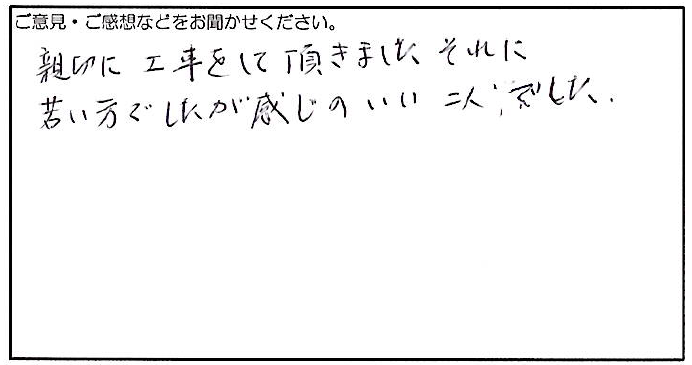 ご意見・ご感想などをお聞かせください。
親切に工事をして頂きました それに
若い方でしたが感じのいい 二人でした.